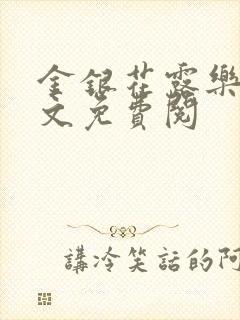 金銀花露樂
文免費閱
講冷笑話的阿